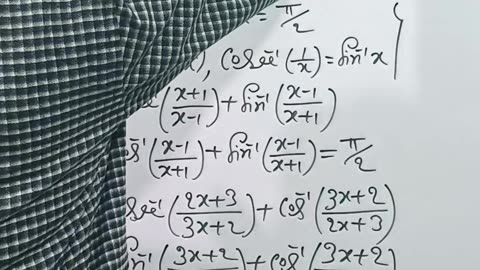 = π/2
), Cosec⁻¹(1/x) = Sin⁻¹x
(x+1/x-1) + Sin⁻¹(x-1/x+1)
(x-1/x+1) + Sin⁻¹(x-1/x+1) = π/2
sec⁻¹(2x+3/3x+2) + Cos⁻¹(3x+2/2x+3)
(3x+2/ ) + Cos⁻¹(3x+2/ )